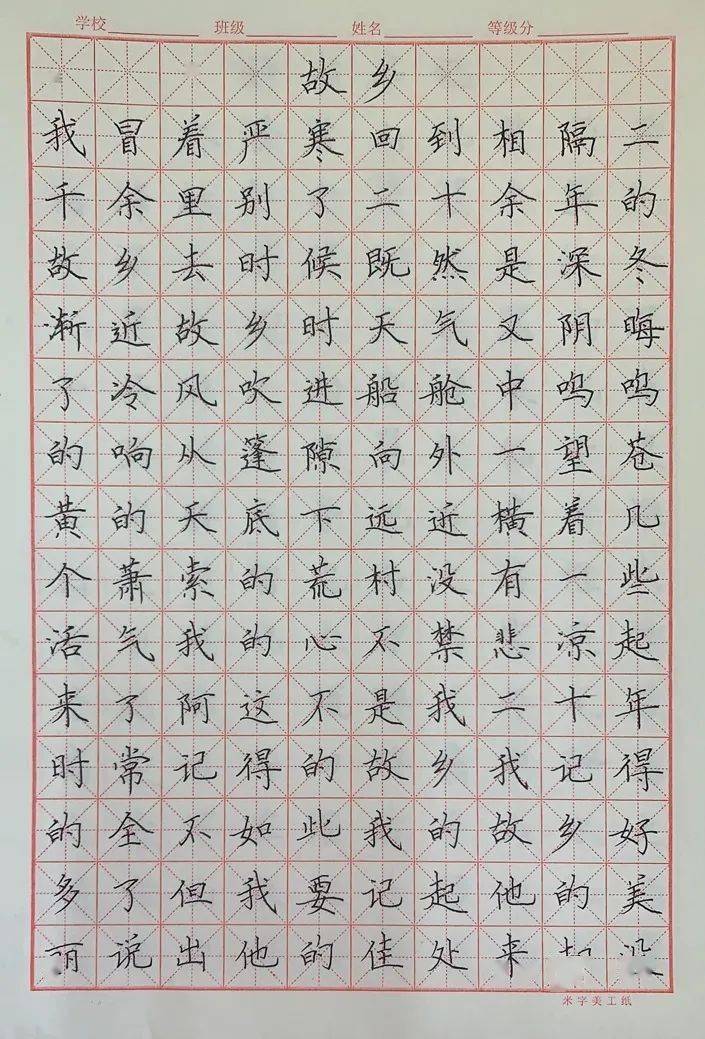 学校 班级 姓名 等级分
故乡
我冒着严寒回到相隔二
千余里别了二十余年的
故乡去时候既然是深冬
渐近故乡时天气又阴晦
了冷风吹进船舱中呜呜
的响从蓬隙向外一望苍
黄的天底下远近横着几
个萧索的荒村没有一些
活气我的心不禁悲凉起
来了阿这不是我二十年
时常记得的故乡我记得
的全不如此我的故乡好
多了但我要记起他的美
说出他的佳处来
米字美工纸